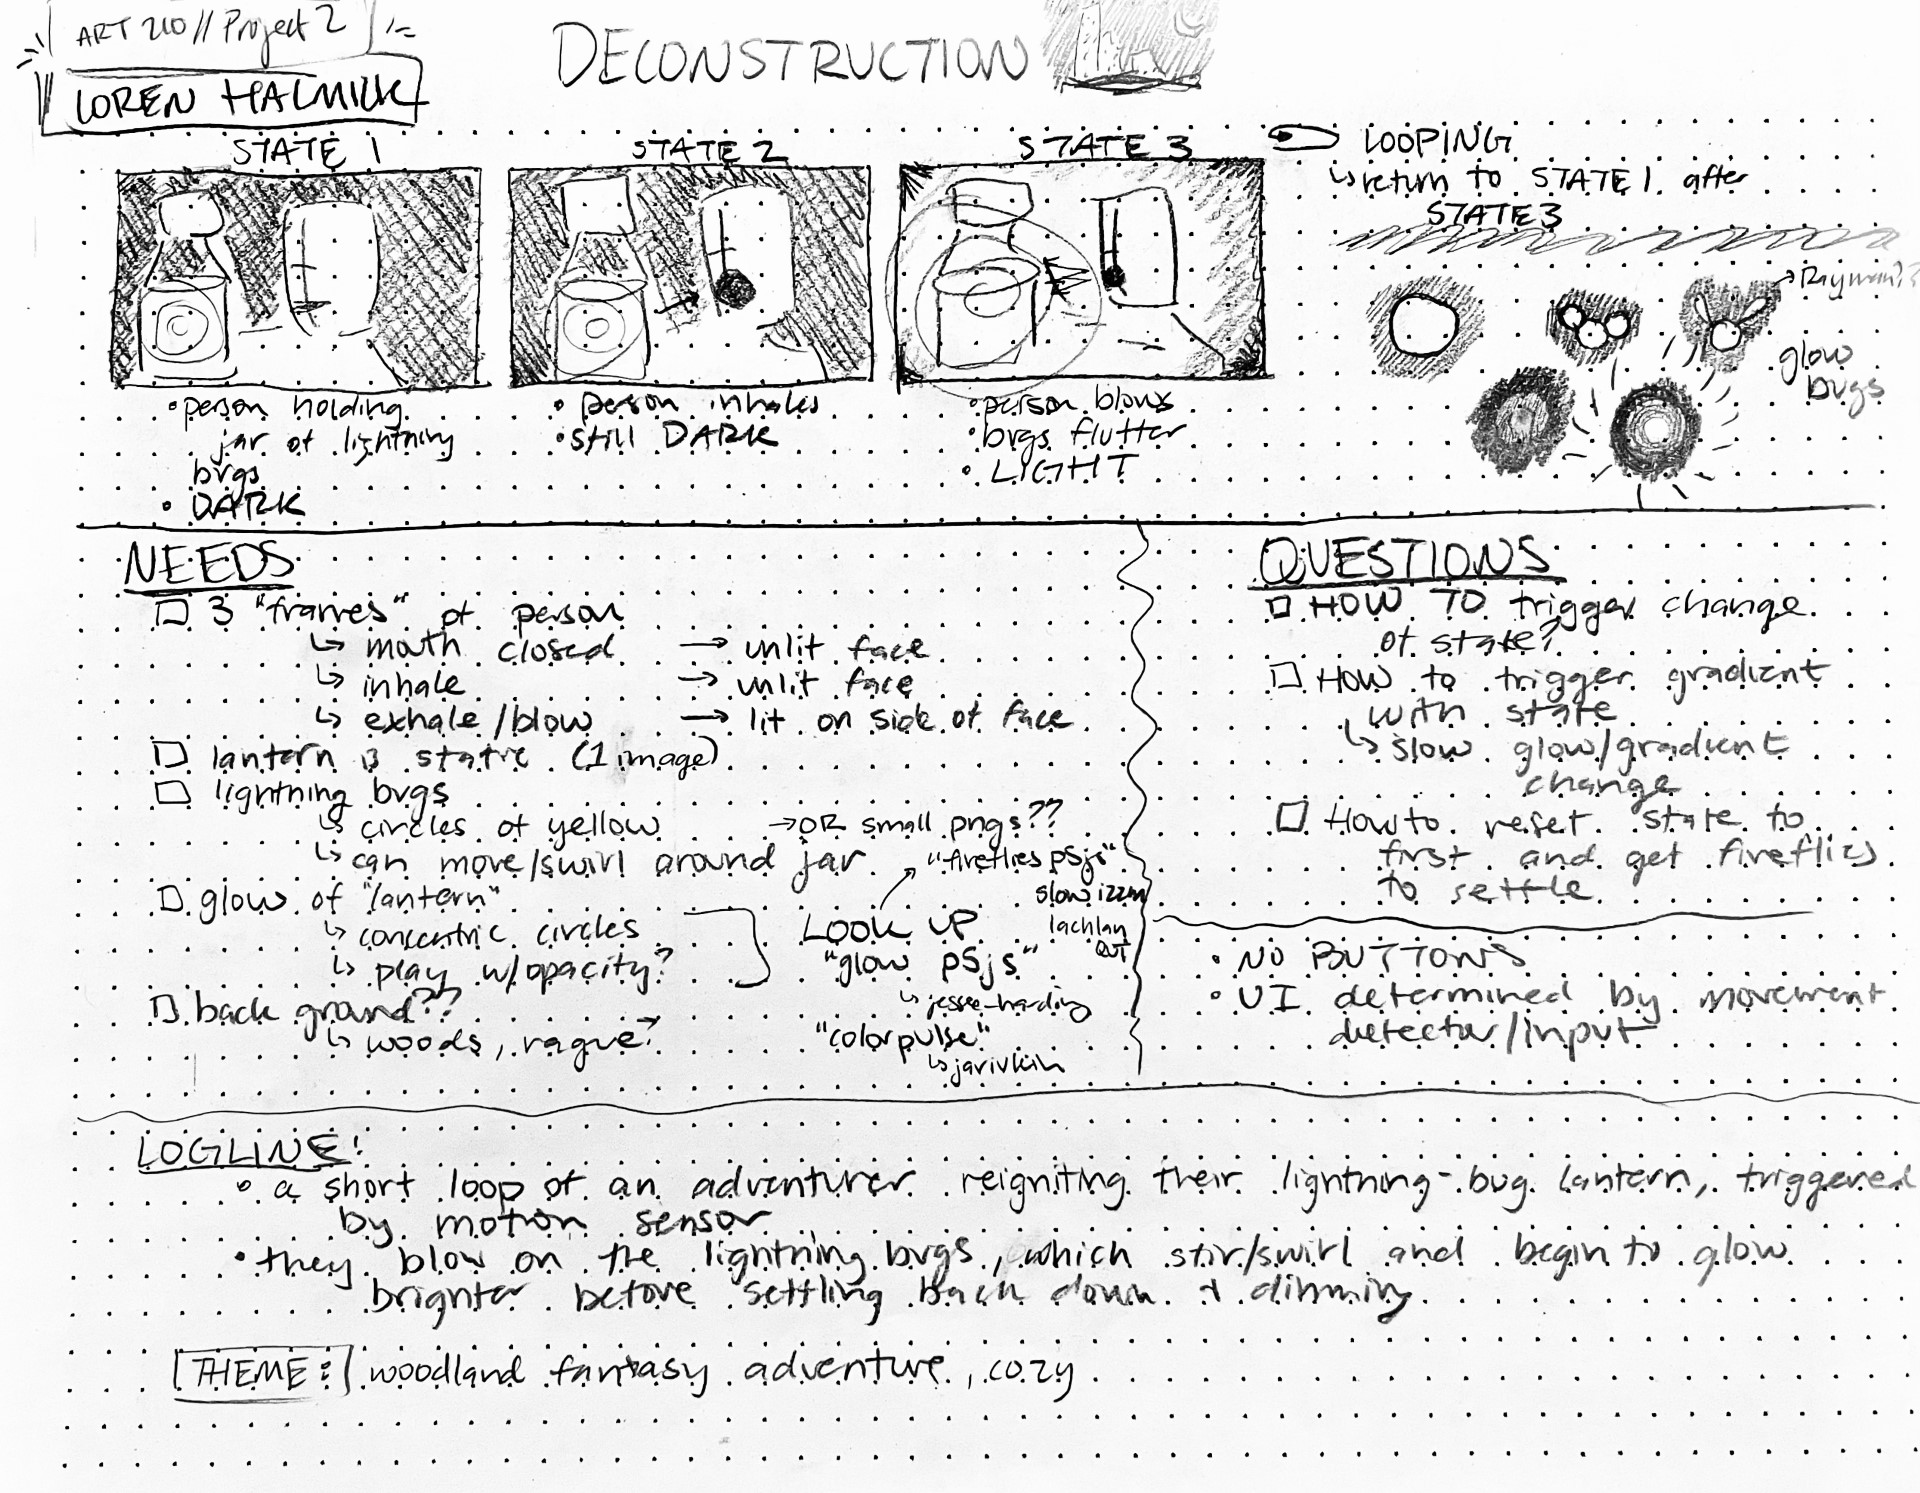 ART 210 // Project 2
LOREN HALMILK
DECONSTRUCTION
STATE 1
• person holding
jar of lightning
bugs
• DARK
STATE 2
• person inhales
• still DARK
STATE 3
• person blows
• bugs flutter
• LIGHT
LOOPING
↳ return to STATE 1 after
STATE 3
→ Rayman??
glow
bugs
NEEDS
□ 3 "frames" of person
↳ mouth closed → unlit face
↳ inhale → unlit face
↳ exhale/blow → lit on side of face
□ lantern is static (1 image)
□ lightning bugs
↳ circles of yellow → OR small pngs??
↳ can move/swirl around jar
□ glow of "lantern"
↳ concentric circles
↳ play w/opacity?
□ back ground??
↳ woods, vague?
"fireflies p5js"
slowizzm
lachlan
QUT
LOOK UP
"glow p5js"
↳ jesse-harding
"colorpulse"
↳ jarivkin
QUESTIONS
□ HOW TO trigger change
of state?
□ HOW to trigger gradient
with state
↳ slow glow/gradient
change
□ How to reset state to
first and get fireflies
to settle
• NO BUTTONS
• UI determined by movement
detector/input
LOGLINE:
• a short loop of an adventurer reigniting their lightning-bug lantern, triggered
by motion sensor
• they blow on the lightning bugs, which stir/swirl and begin to glow
brighter before settling back down & dimming
THEME: woodland fantasy adventure, cozy